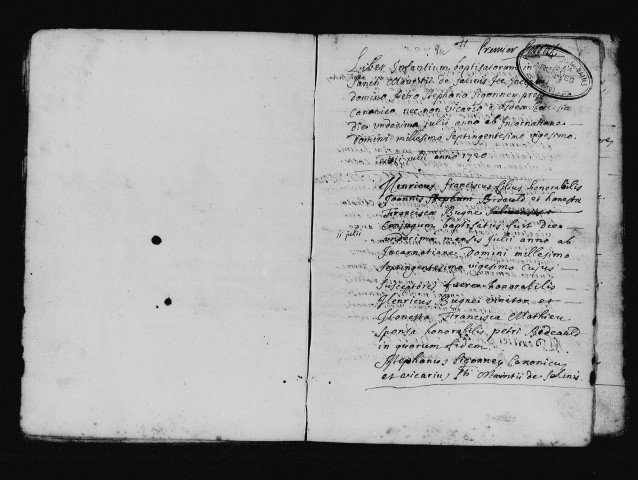 Premier
Liber Infantium baptisatorum in
Sancti Mauritii de
Domino Petro Stephano Pigonney
Canonico nec non vicario
Die undecima julii anno ab Incarnatione
Domini millesimo Septingentesimo vigesimo.
ii julii anno 1720
Henricus franciscus filius honorabilis
Joannis Stephani Bidauld et honestæ
Francisca Bugnet
Conjugum baptisatus fuit die
ii julii
undecima mensis Julii anno ab
Incarnatione Domini millesimo
Septingentesimo vigesimo Cujus
Susceptores fuere honorabilis
Henricus Bugnet vinitor et
Honesta Francisca Mathieu
Sponsa honorabilis petri Bidauld
in quorum fidem
Stephanus Pigonney Canonicus
et vicarius Sti Mauritii de Salinis